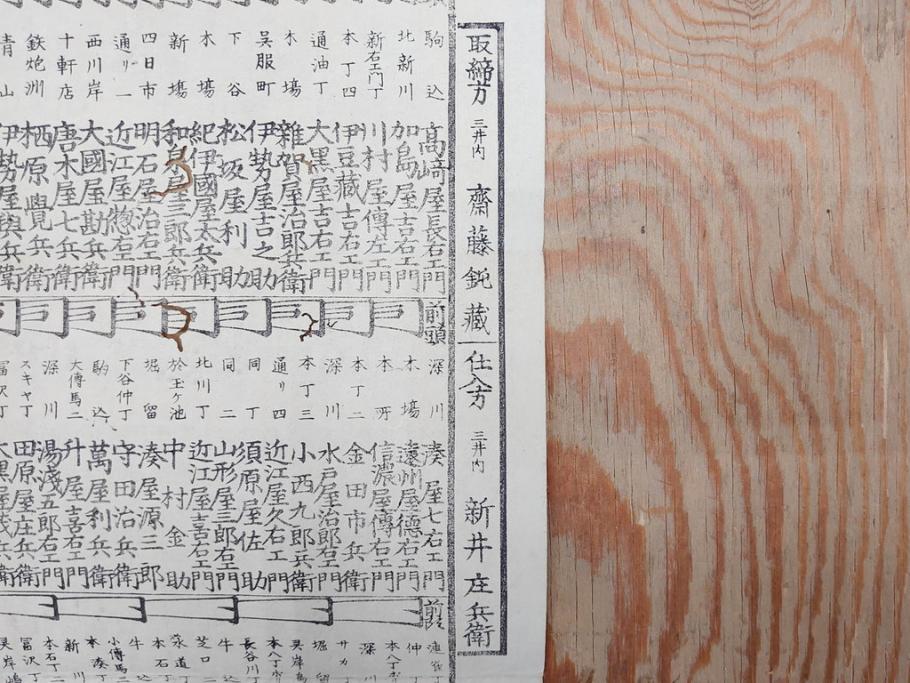 取締方 三井内 齋藤鋭藏
仕入方 三井内 新井庄兵衛
駒込 高﨑屋長右エ門
北新川 加島屋吉右エ門
新右エ門丁 川村屋傳左エ門
本丁四 伊豆藏吉右エ門
通油丁 大黒屋吉右エ門
木場 雜賀屋治郎兵衛
呉服町 伊勢屋吉之助
下谷 松坂屋利助
木場 紀伊國屋太兵衛
新塲 和泉屋三郎兵衛
四日市 明石屋治右エ門
通リ一 近江屋惣右エ門
西川岸 大國屋勘兵衛
十軒店 唐木屋七兵衛
鉄炮洲 栖原覺兵衛
青山 伊勢屋與兵衛
前頭
深川 湊屋七右エ門
木塲 遠州屋德右エ門
本所 信濃屋傳右エ門
本丁二 金田市兵衛
深川 水戸屋治郎右エ門
本丁三 小西九郎兵衛
通リ四 近江屋久右エ門
同丁 須原屋佐助
同二 山形屋三郎右エ門
北川丁 近江屋喜右エ門
於玉ヶ池 中村金助
堀留 湊屋源三郎
下谷仲丁 守田治兵衛
駒込 萬屋利兵衛
大傳馬二 升屋喜右エ門
深川 湯淺五郎右エ門
スキヤ丁 田原屋庄兵衛
冨沢丁 大黒屋茂兵衛
前頭